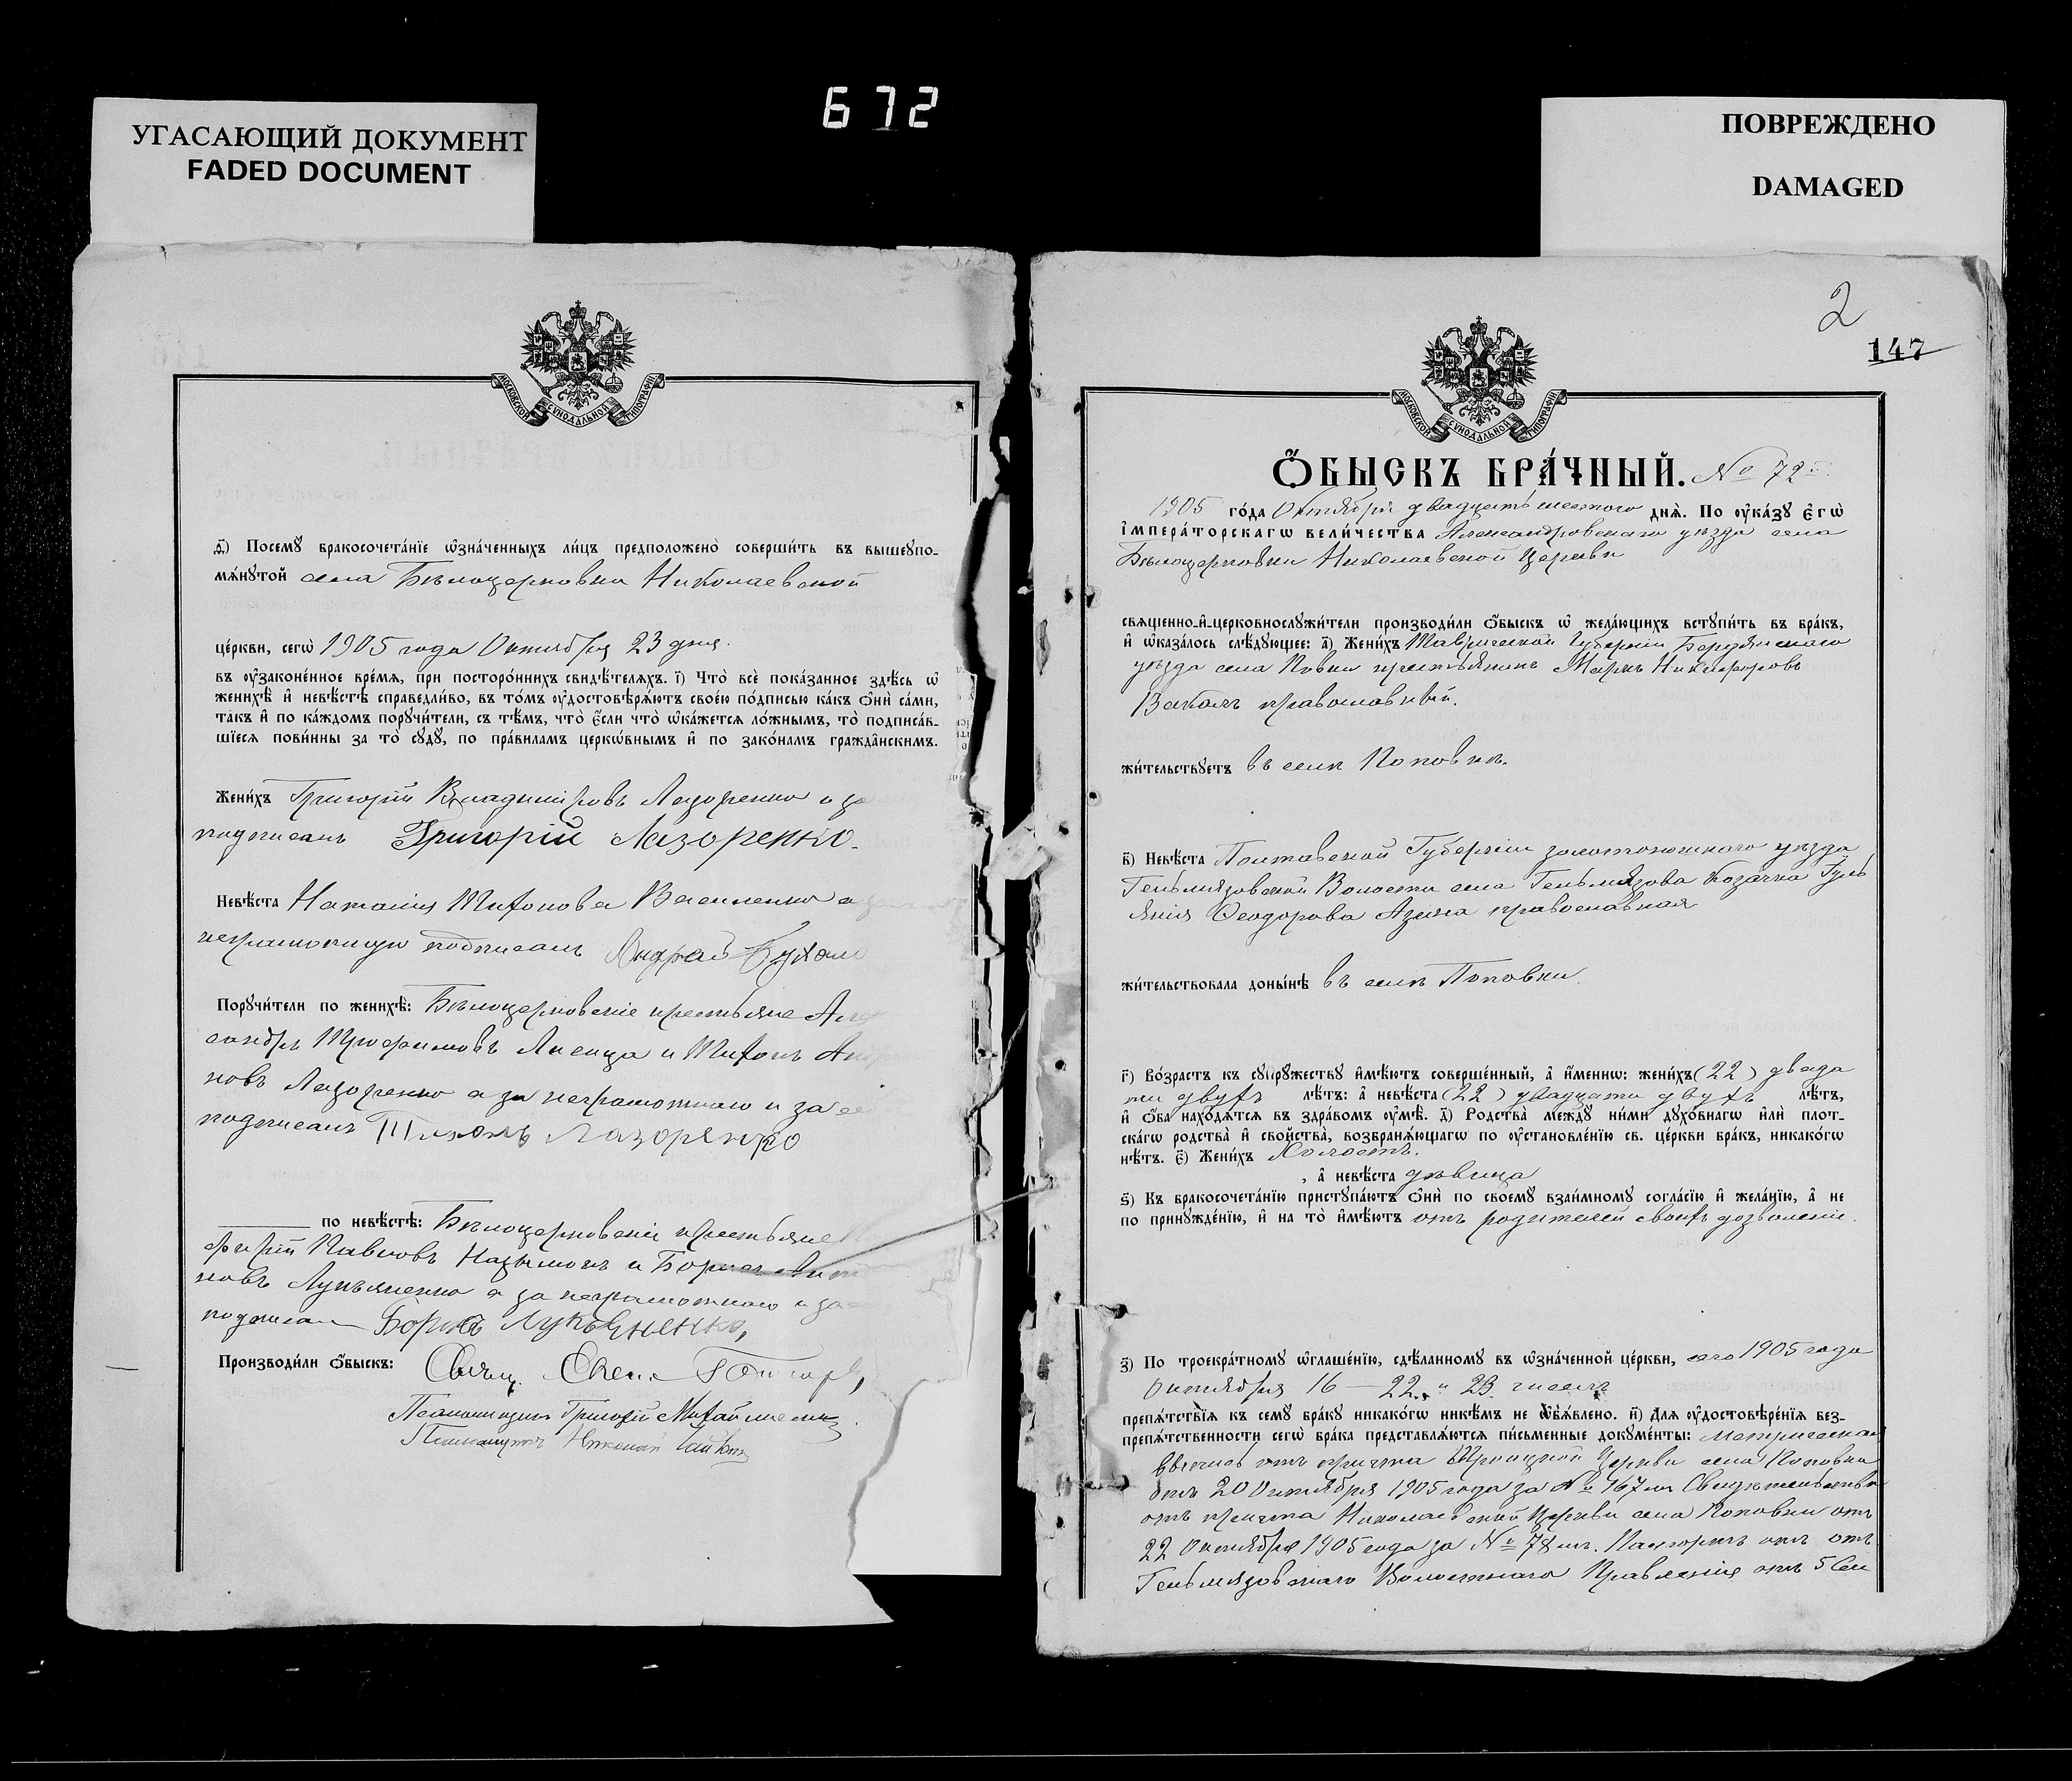 672
УГАСАЮЩИЙ ДОКУМЕНТ
FADED DOCUMENT
ПОВРЕЖДЕНО
DAMAGED
МОСКОВСКОЙ СѴНОДАЛЬНОЙ ТИПОГРАФІИ
Ѳ҃) Посемꙋ бракосочета́нїе ѡ҆зна́ченныхъ ли́цъ предположено̀ соверши́ть въ вышеꙋпо-
мѧ́нꙋтой села Бѣлоцерковки Николаевской
це́ркви, сегѡ̀ 1905 года Октября 23 дня.
въ ᲂу҆зако́ненное вре́мѧ, при посторо́ннихъ свидѣ́телѧхъ. і҃) Что̀ всѐ пока́занное здѣ́сь ѡ҆
женихѣ̀ и҆ невѣ́стѣ справедли́во, въ то́мъ ᲂу҆достовѣрѧ́ютъ свое́ю по́дписью ка́къ ѻ҆нѝ са́ми,
та́къ и҆ по ка́ждомъ порꙋчи́тели, съ тѣ́мъ, что̀ є҆́сли что̀ ѡ҆ка́жетсѧ ло́жнымъ, то̀ подписа́в-
шїесѧ пови́нны за то̀ сꙋдꙋ̀, по пра́виламъ церко́внымъ и҆ по зако́намъ гражда́нскимъ.
Жени́хъ Григорій Владиміровъ Лазоренко и за
подписалъ Григорій Лазоренко.
Невѣ́ста Наталія Тихонова Василенко а
неграмотную подписалъ Андрей
Порꙋчи́тели по женихѣ̀: Бѣлоцерковскіе крестьяне Але
сандръ Трофимовъ Лисица и Тихонъ
новъ Лазоренко а за неграмотнаго и за се
подписалъ Тихонъ Лазоренко
по невѣ́стѣ: Бѣлоцерковскіе крестьяне
фирій Павловъ и Борисъ
новъ Лукьяненко а за неграмотнаго и за
подписалъ Борисъ Лукьяненко,
Производи́ли ѻ҆́быскъ: Свящ.
Псаломщикъ Григорій
Псаломщикъ Николай
2
147
МОСКОВСКОЙ СѴНОДАЛЬНОЙ ТИПОГРАФІИ
Ѻ҆́БЫСКЪ БРА́ЧНЫЙ. № 72
1905 го́да Октября двадцать шестого днѧ̀. По ᲂу҆ка́зꙋ є҆гѡ̀
і҆мпера́торскагѡ вели́чества Александровскаго уѣзда села
Бѣлоцерковки Николаевской Церкви
свѧще́нно-и҆-церковнослꙋжи́тели производи́ли ѻ҆́быскъ ѡ҆ жела́ющихъ встꙋпи́ть въ бра́къ,
и҆ ѡ҆каза́лось слѣ́дꙋющее: а҃) Жени́хъ Таврической Губерніи Бердянскаго
уѣзда села Поповки крестьянинъ Маркъ Никифоровъ
православный.
жи́тельствꙋетъ въ селѣ Поповкѣ.
в҃) Невѣ́ста Полтавской Губерніи Золотоношскаго уѣзда
Гельмязовской Волости села Гельмязова Козачка Гуль
янія Ѳеодорова православная
жи́тельствовала доны́нѣ въ селѣ Поповки.
г҃) Во́зрастъ къ сꙋпрꙋ́жествꙋ и҆мѣ́ютъ соверше́нный, а҆ и҆́менно: жени́хъ (22) двадца
ти двухъ лѣ́тъ: а҆ невѣ́ста (22) двадцати двухъ лѣ́тъ,
и҆ ѻ҆́ба нахо́дѧтсѧ въ здра́вомъ ᲂу҆мѣ̀. д҃) Родства̀ междꙋ̀ ни́ми дꙋхо́внагѡ и҆лѝ плот-
ска́гѡ родства̀ и҆ сво́йства, возбранѧ́ющагѡ по ᲂу҆становле́нїю св. це́ркви бра́къ, никако́гѡ
нѣ́тъ. є҃) Жени́хъ Холостъ.
, а҆ невѣ́ста дѣвица
ѕ҃) Къ бракосочета́нїю пристꙋпа́ютъ ѻ҆нѝ по своемꙋ̀ взаи́мномꙋ согла́сїю и҆ жела́нїю, а҆ не
по принꙋжде́нїю, и҆ на то̀ и҆мѣ́ютъ отъ родителей своихъ дозволеніе.
з҃) По троекра́тномꙋ ѡ҆глаше́нїю, сдѣ́ланномꙋ въ ѡ҆зна́ченной це́ркви, сего 1905 года
Октября 16 — 22 и 23 числъ
препѧ́тствїѧ къ семꙋ̀ бра́кꙋ никако́гѡ никѣ́мъ не ѡ҆бъѧ́влено. и҃) Длѧ ᲂу҆достовѣре́нїѧ без-
препѧ́тственности сегѡ̀ бра́ка представлѧ́ютсѧ пи́сьменные докꙋме́нты: Метрическая
выпись отъ причта Троицкой Церкви села Поповки
отъ 20 Октября 1905 года за № 167 Свидѣтельство
отъ причта Николаевской Церкви села Поповки отъ
22 Октября 1905 года за № 78 Паспортъ отъ отъ
Гельмязовскаго Волостнаго Правленія отъ 5 Сен